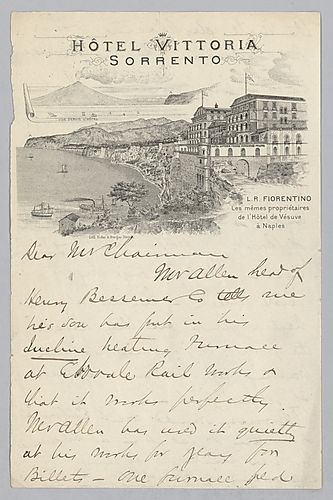 HÔTEL VITTORIA
SORRENTO
VUE DEPUIS L'HÔTEL
L. R. FIORENTINO
Les mêmes propriétaires
de l'Hôtel de Vésuve
à Naples
Dear Mr Chairman
Mr Allen head of
Henry Bessemer Co tells me
his son has put in his
Incline heating Furnace
at Ebbvale Rail Works &
that it works perfectly.
Mr Allen has used it quietly
at his works for years for
Billets — One furnace fed